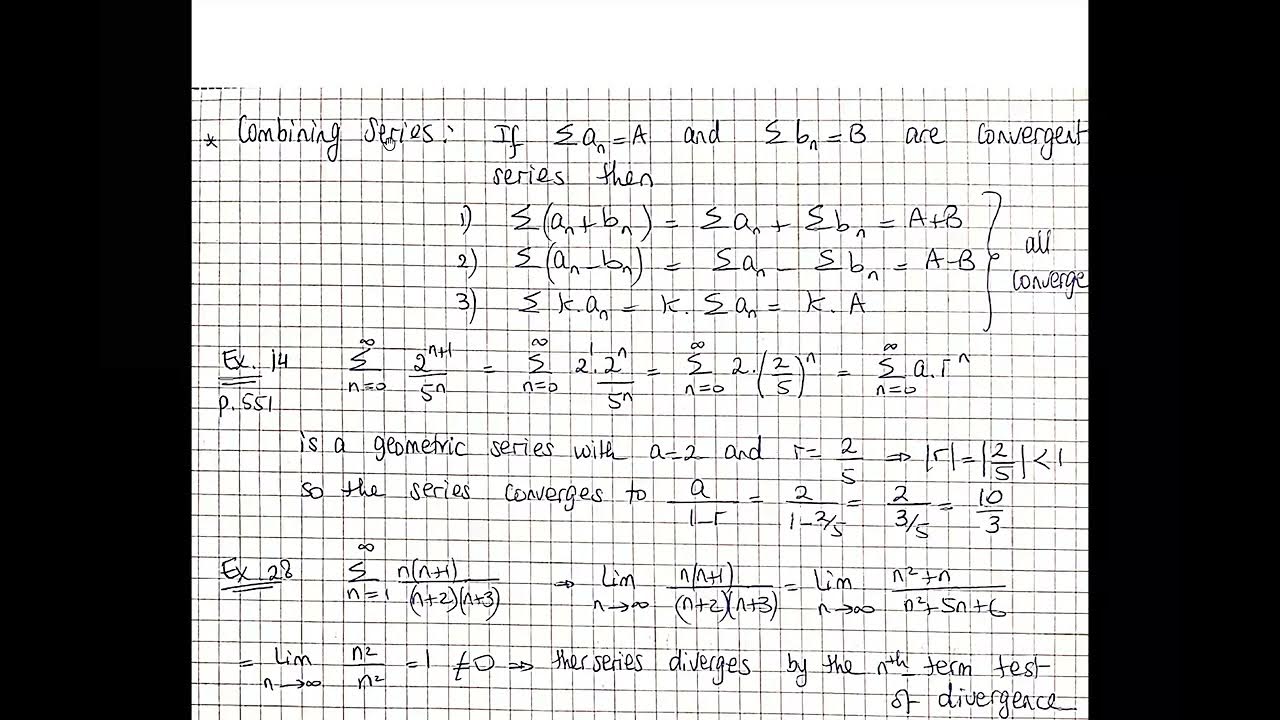 * Combining Series: If Σ aₙ = A and Σ bₙ = B are convergent
series then
1) Σ(aₙ + bₙ) = Σ aₙ + Σ bₙ = A+B
2) Σ(aₙ - bₙ) = Σ aₙ - Σ bₙ = A-B
3) Σ k.aₙ = k. Σ aₙ = k. A
} all
converge
Ex. 14 ∑_{n=0}^{∞} 2^{n+1}/5^n = ∑_{n=0}^{∞} 2^1.2^n/5^n = ∑_{n=0}^{∞} 2.(2/5)^n = ∑_{n=0}^{∞} a.r^n
p.551
is a geometric series with a=2 and r= 2/5 ⇒ |r|=|2/5|<1
so the series converges to a/(1-r) = 2/(1-2/5) = 2/(3/5) = 10/3
Ex 28 ∑_{n=1}^{∞} n(n+1)/(n+2)(n+3) ⇒ lim_{n→∞} n(n+1)/(n+2)(n+3) = lim_{n→∞} (n²+n)/(n²+5n+6)
= lim_{n→∞} n²/n² = 1 ≠ 0 ⇒ the series diverges by the nth term test
of divergence